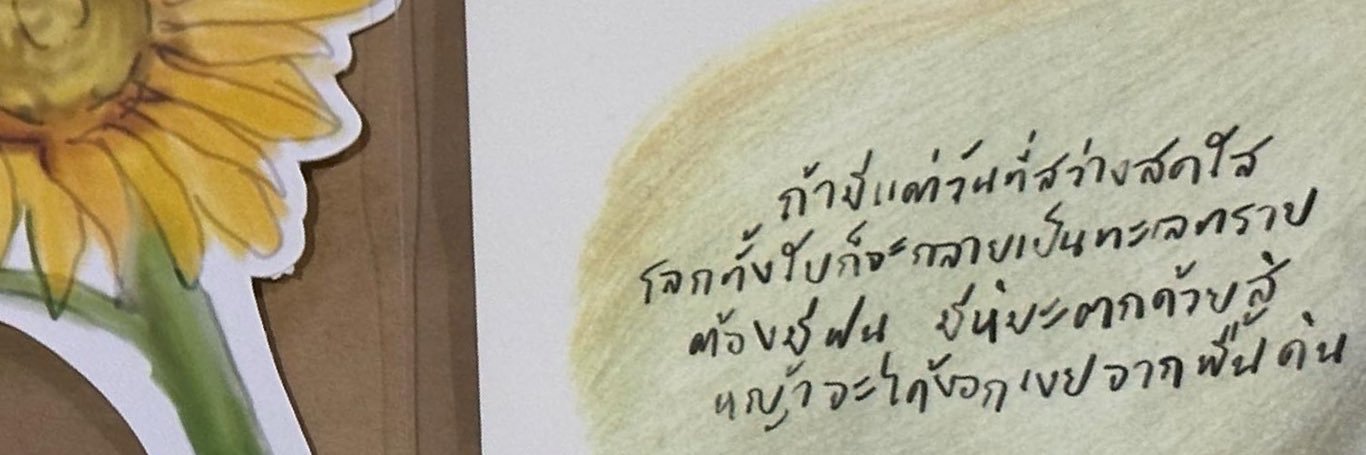 ถ้ามีแต่วันที่สว่างสดใส
โลกทั้งใบก็จะกลายเป็นทะเลทราย
ต้องมีฝน มีหิมะตกด้วยสิ
หญ้าจะได้งอกเงยจากพื้นดิน